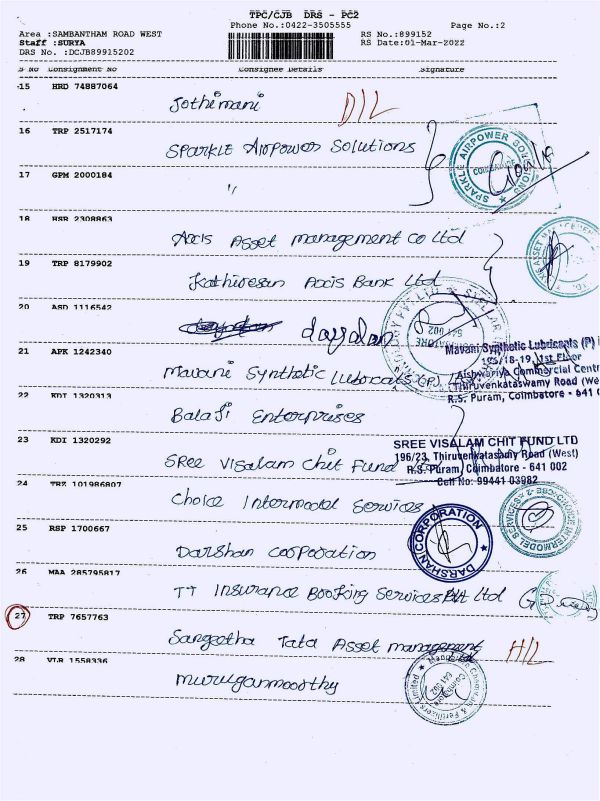 TPC/CJB DRS - PC2
Phone No.:0422-3505555
Page No.:2
Area :SAMBANTHAM ROAD WEST
RS No.:899152
Staff :SURYA
RS Date:01-Mar-2022
DRS No. :DCJB89915202
S No Consignment No Consignee Details Signature
15 HRD 74887064
Jothimani D/L
16 TRP 2517174
Sparkle Airpower Solutions
SPARKLE AIRPOWER SOLUTIONS
COIMBATORE
17 GPM 2000184
"
18 HSR 2308863
Axis Asset management Co Ltd
19 TRP 8179902
Kathiresan Axis Bank Ltd
20 ASD 1116542
dayalan
21 APK 1242340
Mavani Synthetic Lubricats (P)
Mavani Synthetic Lubricants (P)
195/18-19, 1st Floor
Aishwariya Commercial Centr
Thiruvenkataswamy Road (We
R.S. Puram, Coimbatore - 641 0
22 KDI 1320313
Balaji Enterprises
23 KDI 1320292
Sree Visalam Chit Fund
SREE VISALAM CHIT FUND LTD
196/23, Thiruvenkatasamy Road (West)
R.S. Puram, Coimbatore - 641 002
Cell No: 99441 03982
24 TRZ 101986807
Choice Intermodel Services
25 RSP 1700667
Darshan cooporation
DARSHAN CORPORATION
26 MAA 285795817
TT Insurance Booking Services Pvt Ltd
27 TRP 7657763
Sangeetha Tata Asset management H/L
28 VLR 1558336
Muruganmoorthy